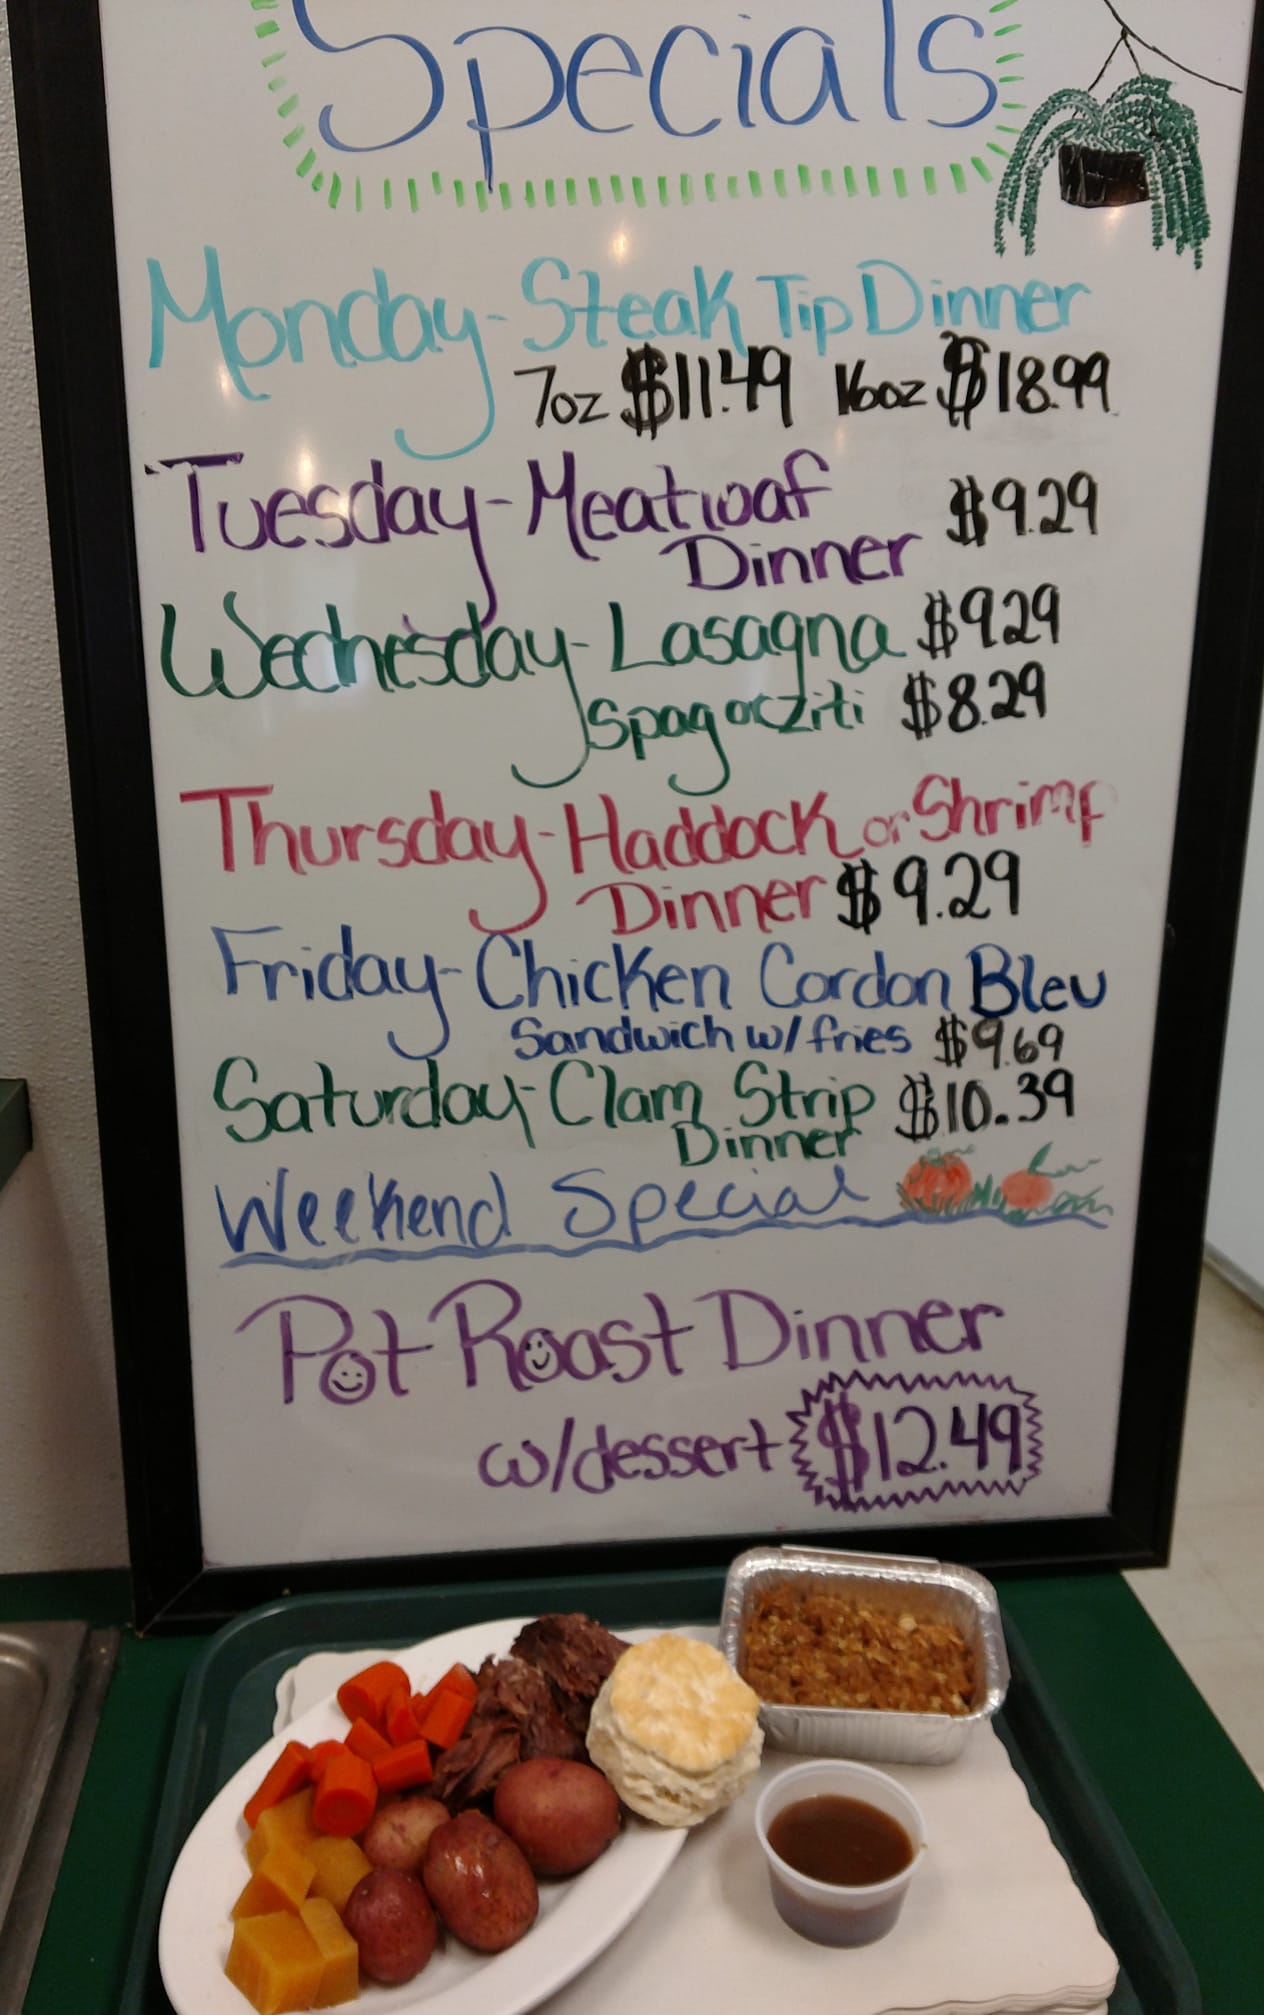 Specials
Monday-Steak Tip Dinner
7oz $11.49 16oz $18.99
Tuesday-Meatloaf $9.29
Dinner
Wednesday-Lasagna $9.29
Spag or ziti $8.29
Thursday-Haddock or Shrimp
Dinner $9.29
Friday-Chicken Cordon Bleu
Sandwich w/fries $9.69
Saturday-Clam Strip $10.39
Dinner
Weekend Special
Pot Roast Dinner
w/dessert $12.49